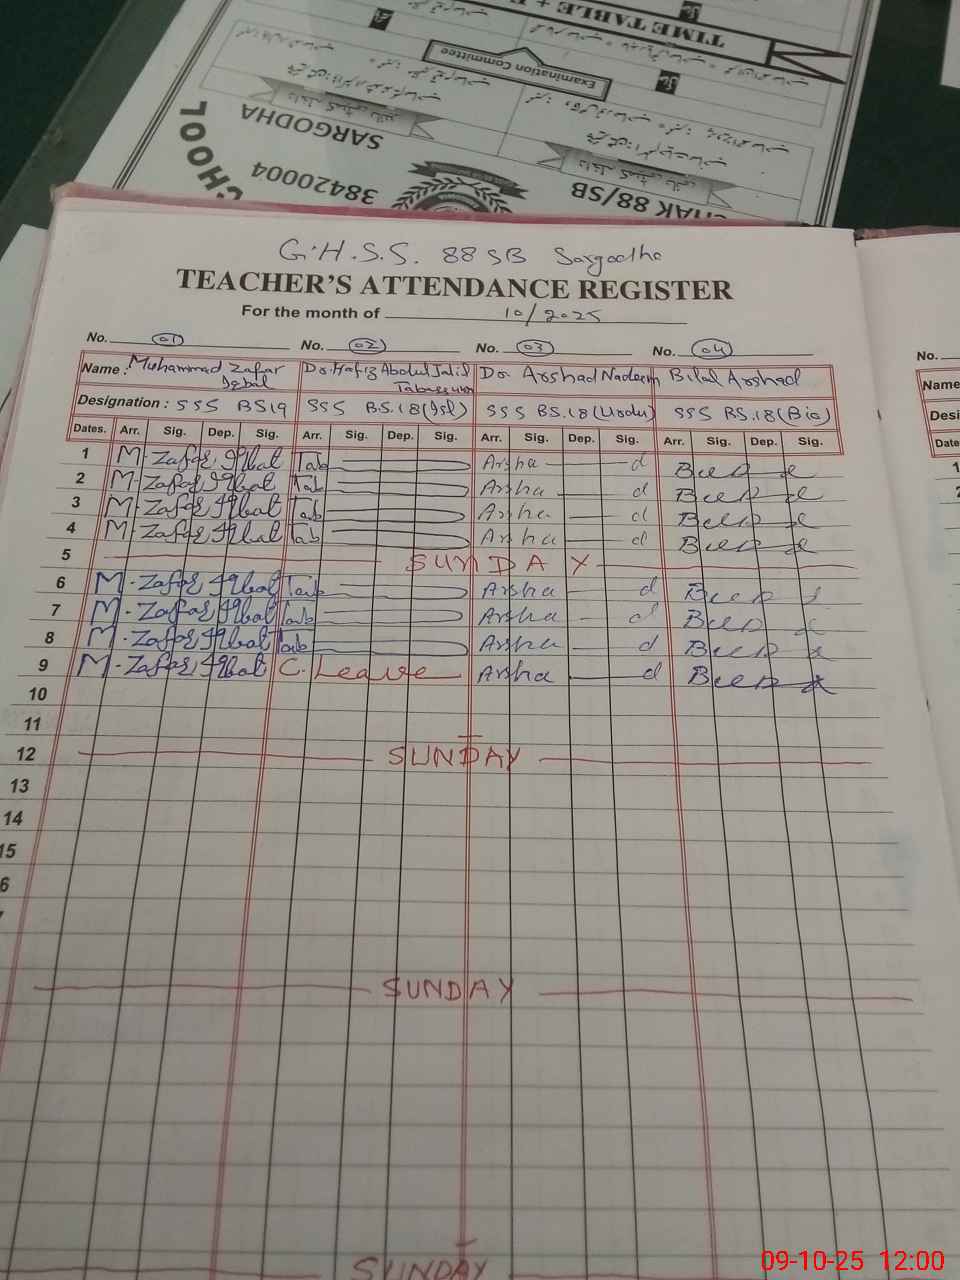 TIME TABLE +
Examination Committee
SARGODHA
CHOOL
38420004
CHAK 88/SB
G.H.S.S. 88 SB Sargodha
TEACHER'S ATTENDANCE REGISTER
For the month of 10/2025
No. 01 No. 02 No. 03 No. 04 No.
Name: Muhammad Zafar Iqbal Dr. Hafiz Abdul Jalil Tabassum Dr. Arshad Nadeem Bilal Arshad Name
Designation: SSS BS19 SSS BS.18 (Isl) SSS BS.18 (Urdu) SSS BS.18 (Bio) Desi
Dates. Arr. Sig. Dep. Sig. Arr. Sig. Dep. Sig. Arr. Sig. Dep. Sig. Arr. Sig. Dep. Sig. Date
1 M. Zafar Iqbal Tab Arsha d
2 M. Zafar Iqbal Tab Arsha d
3 M. Zafar Iqbal Tab Arsha d
4 M. Zafar Iqbal Tab Arsha d
5 SUNDAY
6 M. Zafar Iqbal Tab Arsha d
7 M. Zafar Iqbal Tab Arsha d
8 M. Zafar Iqbal Tab Arsha d
9 M. Zafar Iqbal C. Leave Arsha d
10
11
12 SUNDAY
13
14
15
6
SUNDAY
SUNDAY
09-10-25 12:00